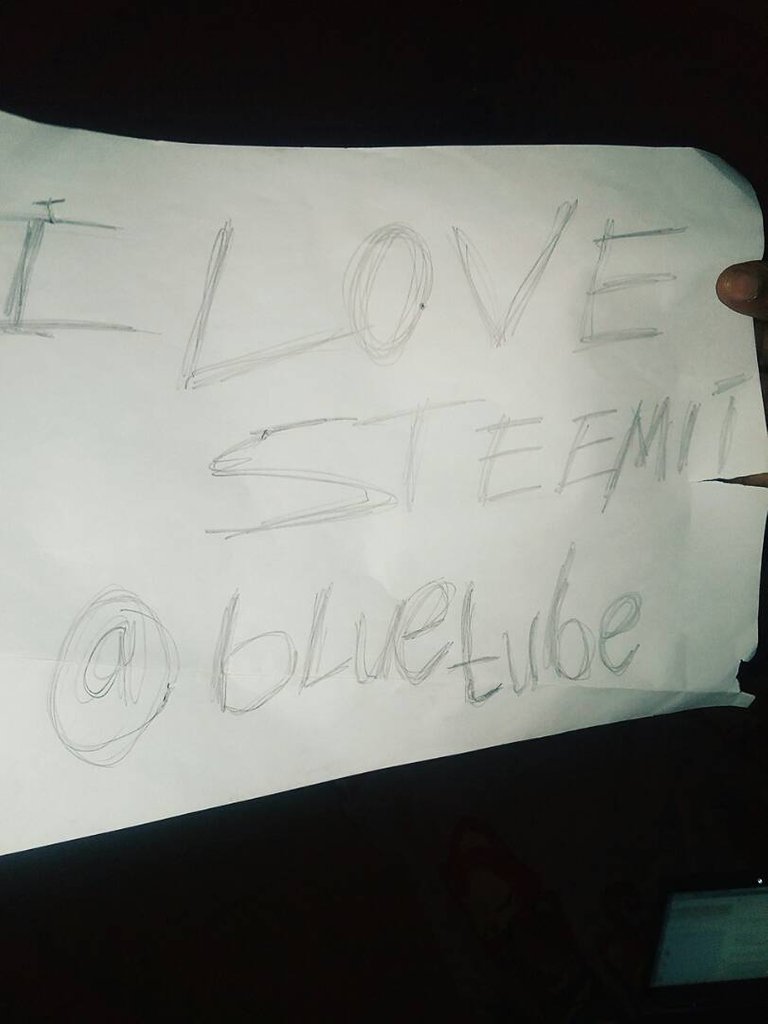 I LOVE
STEEMIT
@bluetube